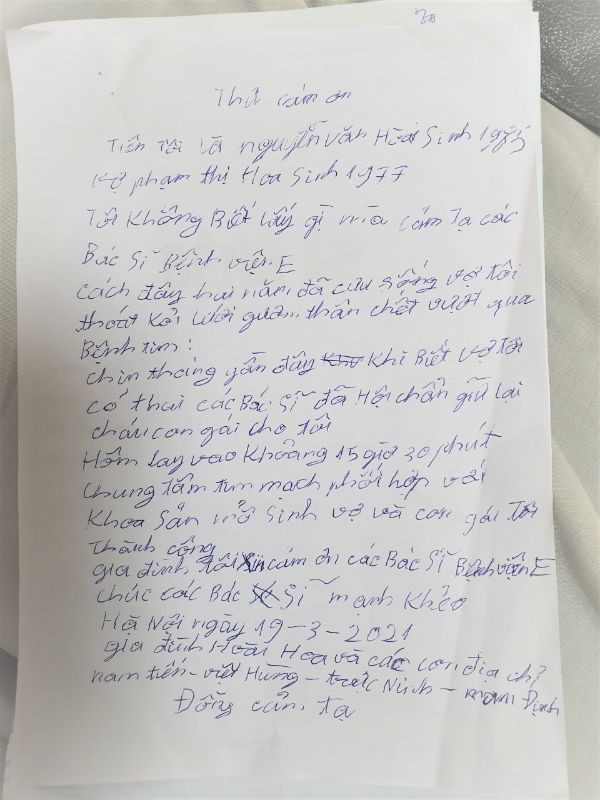 Thư cám ơn
Tiên Tôi là nguyễn văn Hoài Sinh 1975
vợ phạm thị Hoa Sinh 1977
Tôi Không Biết lấy gì mìa cám Tạ các
Bác Sĩ Bệnh viện E
cách đây hai năm đã cứu sống vợ tôi
thoát Kỏi lưỡi gươm thần chết vượt qua
Bệnh tim!
chín tháng gần đây Khi Biết vợ tôi
có thai các Bác Sĩ đã Hội chẩn giữ lại
cháu con gái cho tôi
Hôm lay vào Khoảng 15 giờ 30 phút
chung tâm tim mạch phối hợp với
Khoa Sản mổ Sinh vợ và con gái tôi
Thành công
gia đình tôi Xin cám ơn các Bác Sĩ Bệnh viện E
chúc các Bác Sĩ mạnh Khẻo
Hà Nội ngày 19-3-2021
gia đình Hoài Hoa và các con địa chỉ
nam tiến - việt Hùng - trực Ninh - nam Định
Đồng cảm tạ